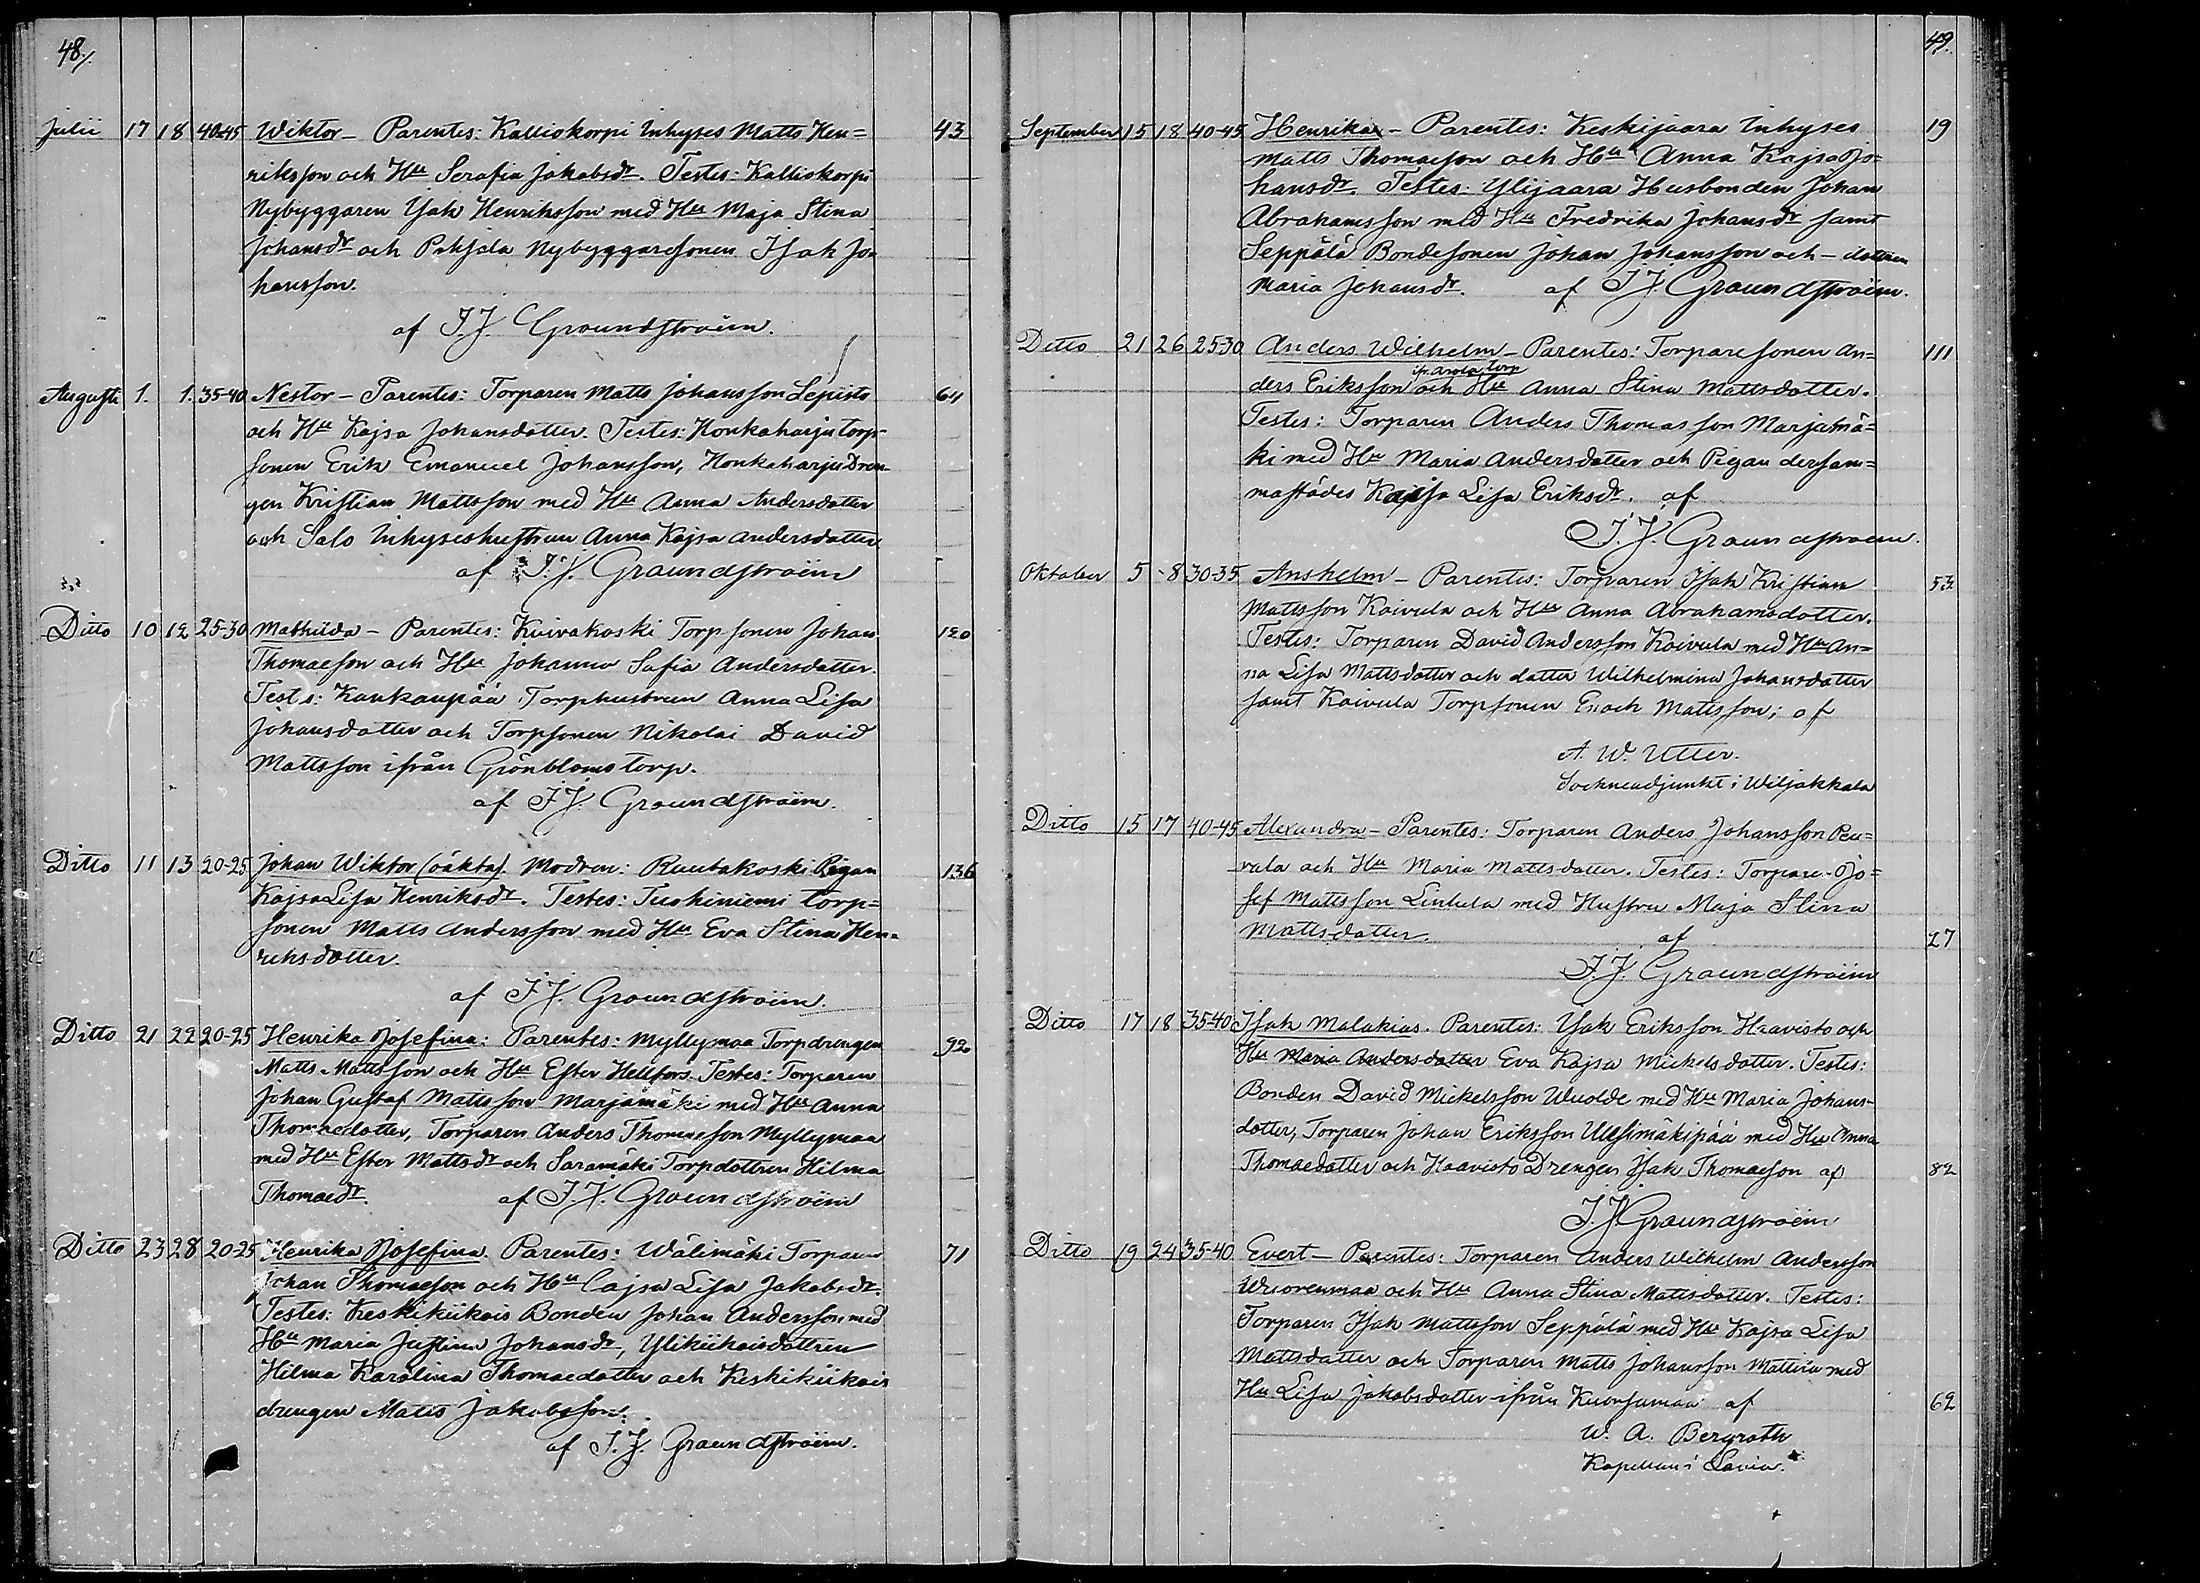 48./
Julii 17 18 40-45 Wiktor – Parentes: Kalliokorpi Inhyses Matts Hen= 43
riksson och Hu Serafia Jakobsdr. Testes: Kalliokorpi
Nybyggaren Isak Henriksson med Hu Maja Stina
Johansdr och Pohjola Nybyggaresonen Isak Jo-
hansson.
af F.J. Graundstroëm.
Augusti 1. 1. 35-40 Nestor – Parentes: Torparen Matts Johansson Lepistö 64
och Hu Kajsa Johansdotter. Testes: Honkaharju torp-
sonen Erik Emanuel Johansson, Honkaharju Dren-
gen Kristian Mattsson med Hu Anna Andersdotter
och Salo Inhyseshustrun Anna Kajsa Andersdotter
af F.J. Graundstroëm
Ditto 10 12 25-30 Mathilda – Parentes: Koivukoski Torpsonen Johan 120
Thomaeson och Hu Johanna Sofia Andersdotter.
Testes: Kankaupää Torphustrun Anna Lisa
Johansdotter och Torpsonen Nikolai David
Mattsson ifrån Grönbloms torp.
af F.J. Graundstroëm.
Ditto 11 13 20-25 Johan Wiktor (oäkta). Modren: Ruutakoski Pigan 136
Kajsa Lisa Henriksdr. Testes: Tuohiniemi torp=
sonen Matts Andersson med Hu Eva Stina Hen=
riksdotter.
af F.J. Graundstroëm.
Ditto 21 22 20-25 Henrika Josefina: Parentes: Myllymaa Torpdrengen 92
Matts Mattsson och Hu Ester Hellfors. Testes: Torparen
Johan Gustaf Mattsson Marjamäki med Hu Anna
Thomaedotter, Torparen Anders Thomaeson Myllymaa
med Hu Ester Mattsdr och Saramäki Torpdottren Hilma
Thomaedr. af F.J. Graundstroëm
Ditto 23 28 20-25 Henrika Josefina. Parentes: Wälimäki Torparen 71
Johan Thomaeson och Hu Cajsa Lisa Jakobsdr.
Testes: Keskikiikois Bonden Johan Andersson med
Hu Maria Justina Johansdr, Ylikiikoisdottren
Hilma Karolina Thomaedotter och Keskikiikois
drengen Matts Jakobsson.
af F.J. Graundstroëm.
49.
September 15 18 40-45 Henrika – Parentes: Keskijaara Inhyses 19
Matts Thomaeson och Hu Anna Kajsa Jo-
hansdr. Testes: Ylijaara Husbonden Johan
Abrahamsson med Hu Fredrika Johansdr samt
Seppälä Bondesonen Johan Johansson och – dottren
Maria Johansdr. af F.J. Graundstroëm.
Ditto 21 26 25-30 Anders Wilhelm – Parentes: Torparesonen An= 111
torp
ders Eriksson och Hu Anna Stina Mattsdotter.
Testes: Torparen Anders Thomasson Marjamä=
ki med Hu Maria Andersdotter och Pigan dersam=
mastädes Kajsa Lisa Eriksdr. af
F.J. Graundstroëm.
Oktober 5 8 30-35 Anshelm – Parentes: Torparen Isak Kristian 53
Mattsson Koivula och Hu Anna Abrahamsdotter.
Testes: Torparen David Andersson Koivula med Hu An=
na Lisa Mattsdotter och dotter Wilhelmina Johansdotter
samt Koivula Torpsonen Enoch Mattsson; af
A. W. Utter.
Sockneadjunkt i Wiljakkala
Ditto 15 17 40-45 Alexandra – Parentes: Torparen Anders Johansson Peu=
rala och Hu Maria Mattsdotter. Testes: Torpare- Jo=
sef Mattsson Lintula med Hustru Maja Stina
Mattsdotter. af 27
F.J. Graundstroëm
Ditto 17 18 35-40 Isak Malakias. Parentes: Isak Eriksson Haavisto och
Hu Maria Andersdotter Eva Kajsa Mickelsdotter. Testes:
Bonden David Mickelsson Wuolde med Hu Maria Johans-
dotter, Torparen Johan Eriksson Uusimäkipää med Hu Anna
Thomaedotter och Haavisto Drengen Isak Thomaeson af 82
F.J. Graundstroëm
Ditto 19 24 35-40 Evert – Parentes: Torparen Anders Wilhelm Andersson
Wuorenmaa och Hu Anna Stina Mattsdotter. Testes:
Torparen Isak Mattsson Seppälä med Hu Kajsa Lisa
Mattsdotter och Torparen Matts Johansson Mattila med
Hu Lisa Jakobsdotter ifrån Kuorsumaa af 62
W. A. Bergroth
Kapellan i Lavia.